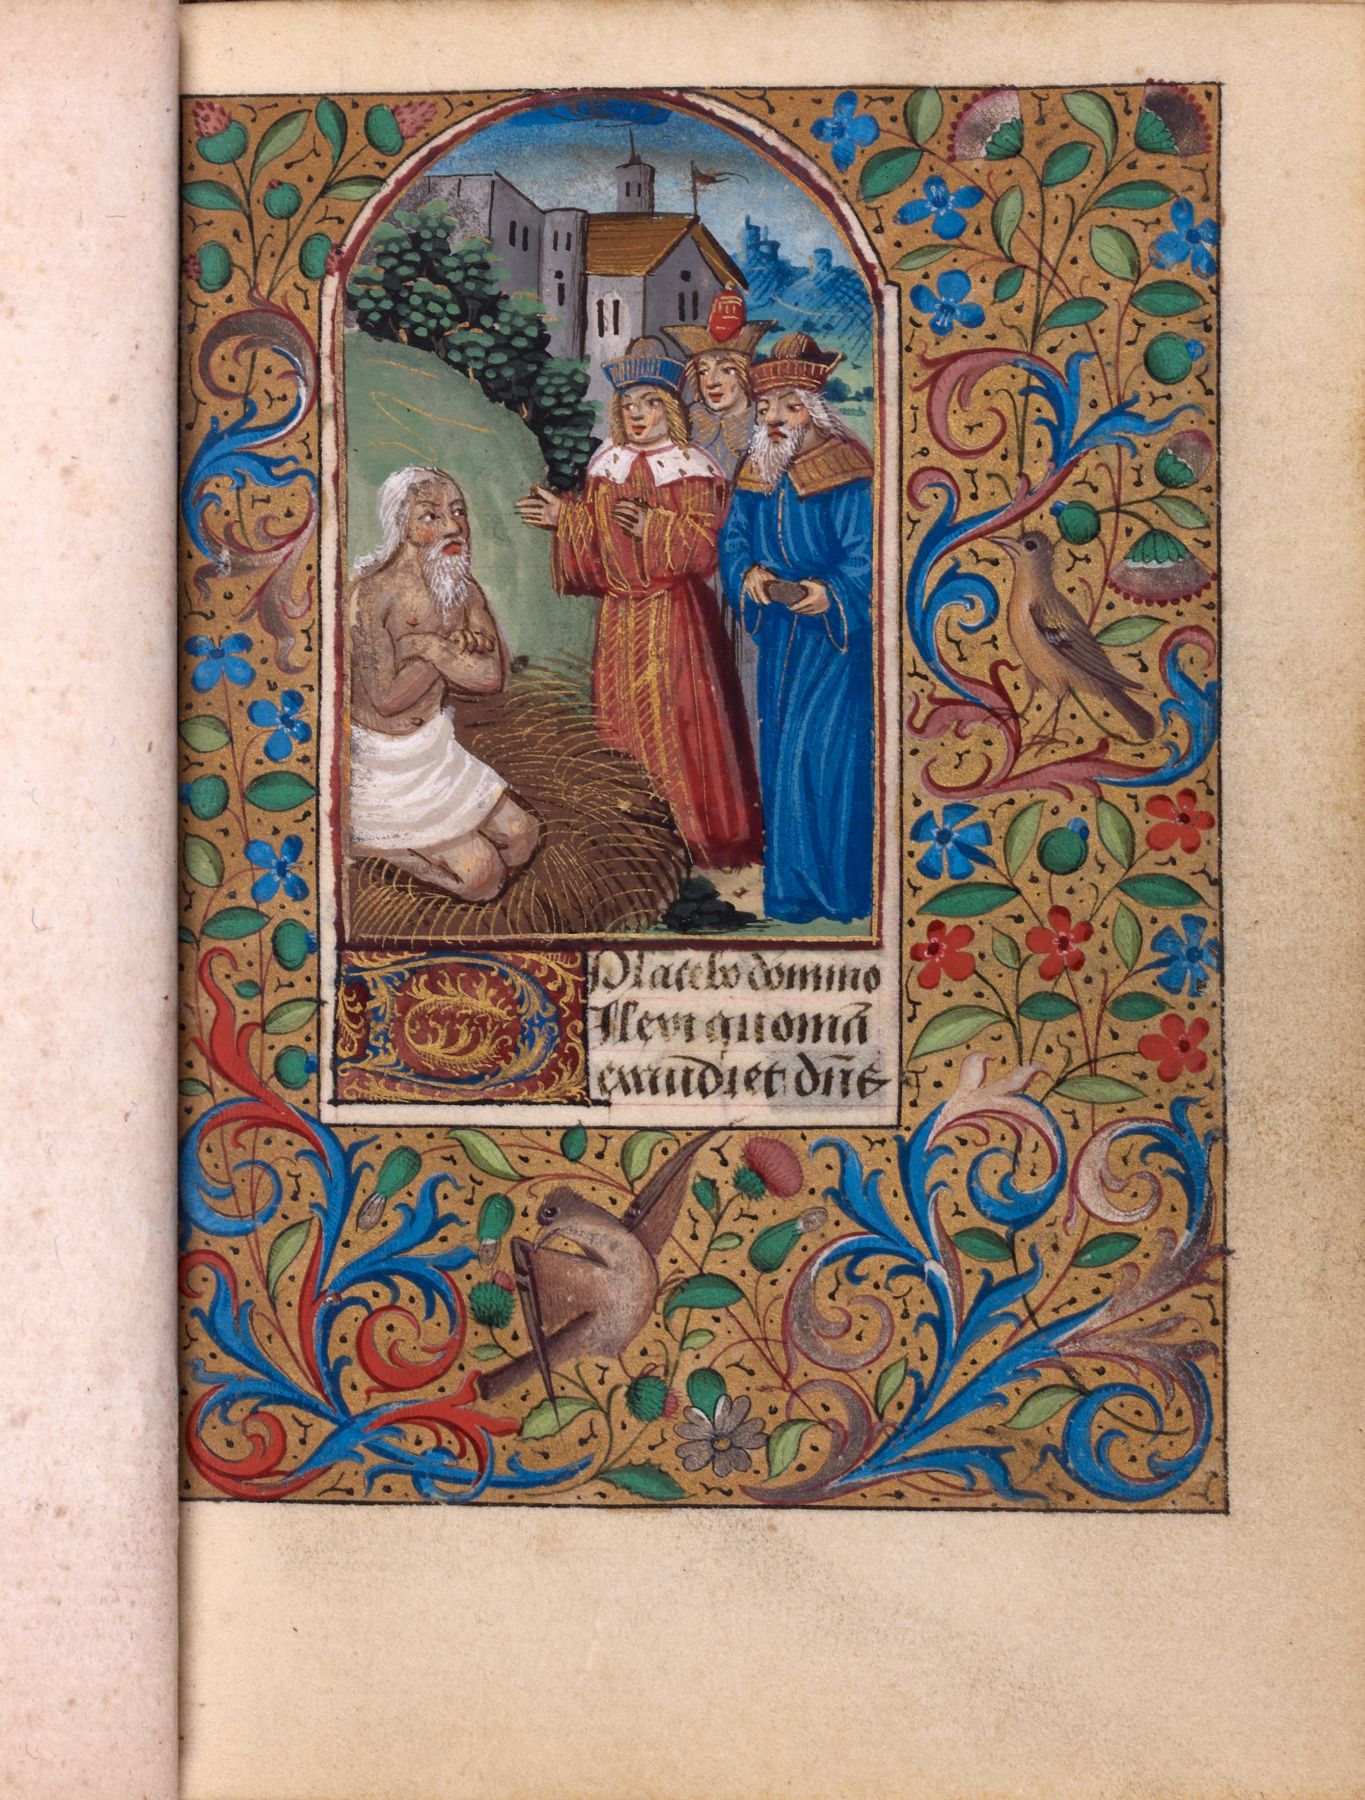 Placebo domino
DIlexi quoniā
exaudiet dn̄s